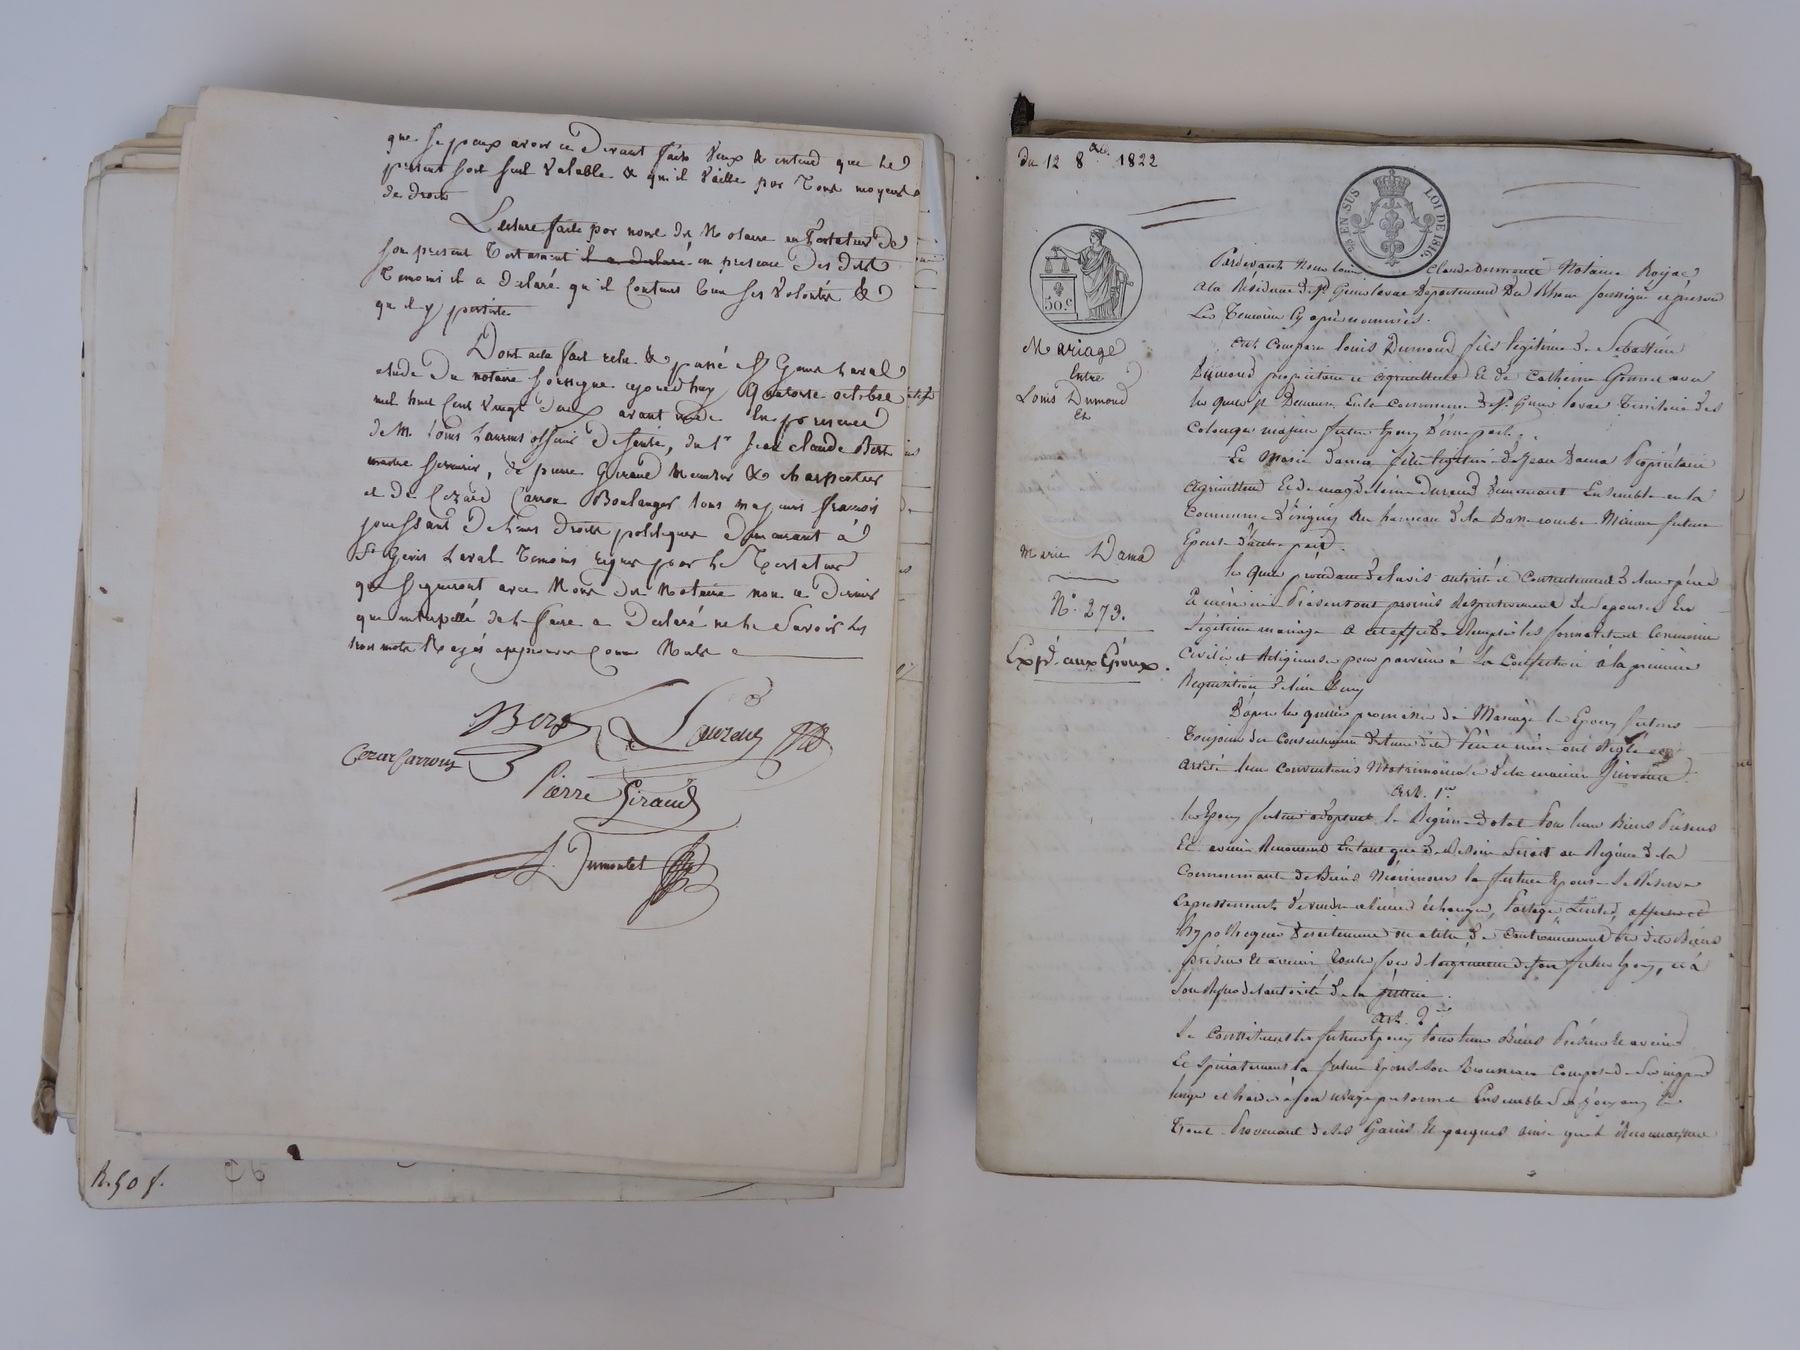 que je peux avoir ce devant faits veux & entend que le
présent soit seul valable & qu'il vaille par tous moyens
de droit
Lecture faite par nous dit Notaire au Testateur de
son présent Testament il a déclaré en présence des dits
Témoins il a déclaré qu'il contient bien ses volontés &
qu'il y persiste
Dont acte fait relu & passé à St Genis Laval
étude du notaire soussigné ajourdhuy quatorse octobre
mil huit cent vingt deux avant midi En présence
de Mr Louis Laurens officier de santé, du Sr Jean claude Bert
maitre serrurier, de pierre Giraud menuisier & charpentier
et de Cezard Carron Boulanger tous majeurs français
jouissant de leurs droits politiques demeurant à
St Genis Laval Témoins requis par le Testateur
qui signeront avec Nous dit Notaire non ce dernier
qui interpellé de le faire a Déclaré ne le Savoir les
trois mots Rayés approuvés comme Nuls
Bert Laurens
Cezar Carron
Pierre Giraud
L. Dumoulet
R. 50 f.
du 12 8bre 1822
EN SUS LOI DE 1816
50.c
Mariage
Entre
Louis Dumond
Et
Marie Dama
N.° 273.
Expd. aux Epoux.
Pardevant Nous Louis Claude Notaire Royal
a la Résidence de St Genis laval Département Du Rhône soussigné et présens
Les Témoins Cy après nommés.
Ont Comparu Louis Dumond fils légitime de Sébastien
Dumond propriétaire et agriculteur Et de Catherine avec
les quels il Demeure En la Commune de St Genis laval Territoire des
Colonges majeur futur Epoux D'une part.
Et Marie Dama fille légitime de Jean Dama Propriétaire
Agriculteur Et de magdeleine Durand Demeurant Ensemble en la
Commune d'irigny au hameau de la Basse combe Mineure future
Epouse D'autre part.
les quels procédant de l'avis autorité et Consentement de leurs pères
Et mères ici Présents ont promis Respectivement De s'épouser En
légitime mariage à cet effet De Remplir les formalités et Cérémonies
Civiles et Religieuses pour parvenir à La Célébration à la première
Requisition de l'un d'eux
D'après les quelles promesses de Mariage les Epoux futurs
Toujours du Consentement de leurs dits Père et mère ont Réglé et
arrêté leurs Conventions Matrimoniales de la manière suivante.
Art. 1er
les Epoux futurs adoptent le Régime dotal Pour leurs Biens Présens
Et avenir Renonçant En tant que de Besoin Serait au Régime de la
Communauté de Biens Néanmoins la future Epouse Se Réserve
Expressement de vendre aliéner échanger, Partager, Liciter, affermer et
hypothéquer de ses Biens
présens & avenir de son futur Epoux, et à
Son Refus de l'autorité de la justice.
Art. 2e
Se Constituent les futurs Epoux Tous leurs Biens Présens & avenir
Et la future Epouse Son Trousseau Composé de
linge et hardes à son usage personnel
Provenant de ses Gains & Epargnes ainsi que le Reconnaissent